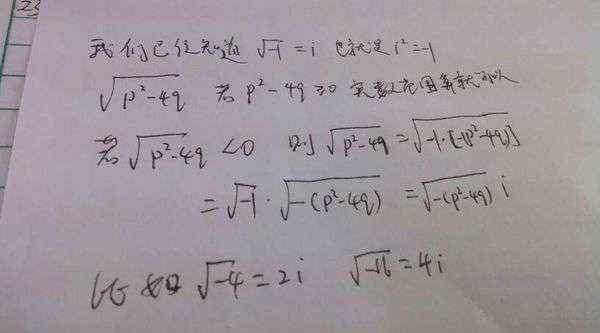 我们已经知道 √-1 = i 也就是 i² = -1
√(p²-4q) 若 p²-4q ≥ 0 实数范围算就可以
若 √(p²-4q) < 0 则 √(p²-4q) = √(-1·[-(p²-4q)])
= √-1 · √(-(p²-4q)) = √(-(p²-4q)) i
比如 √-4 = 2i √-16 = 4i